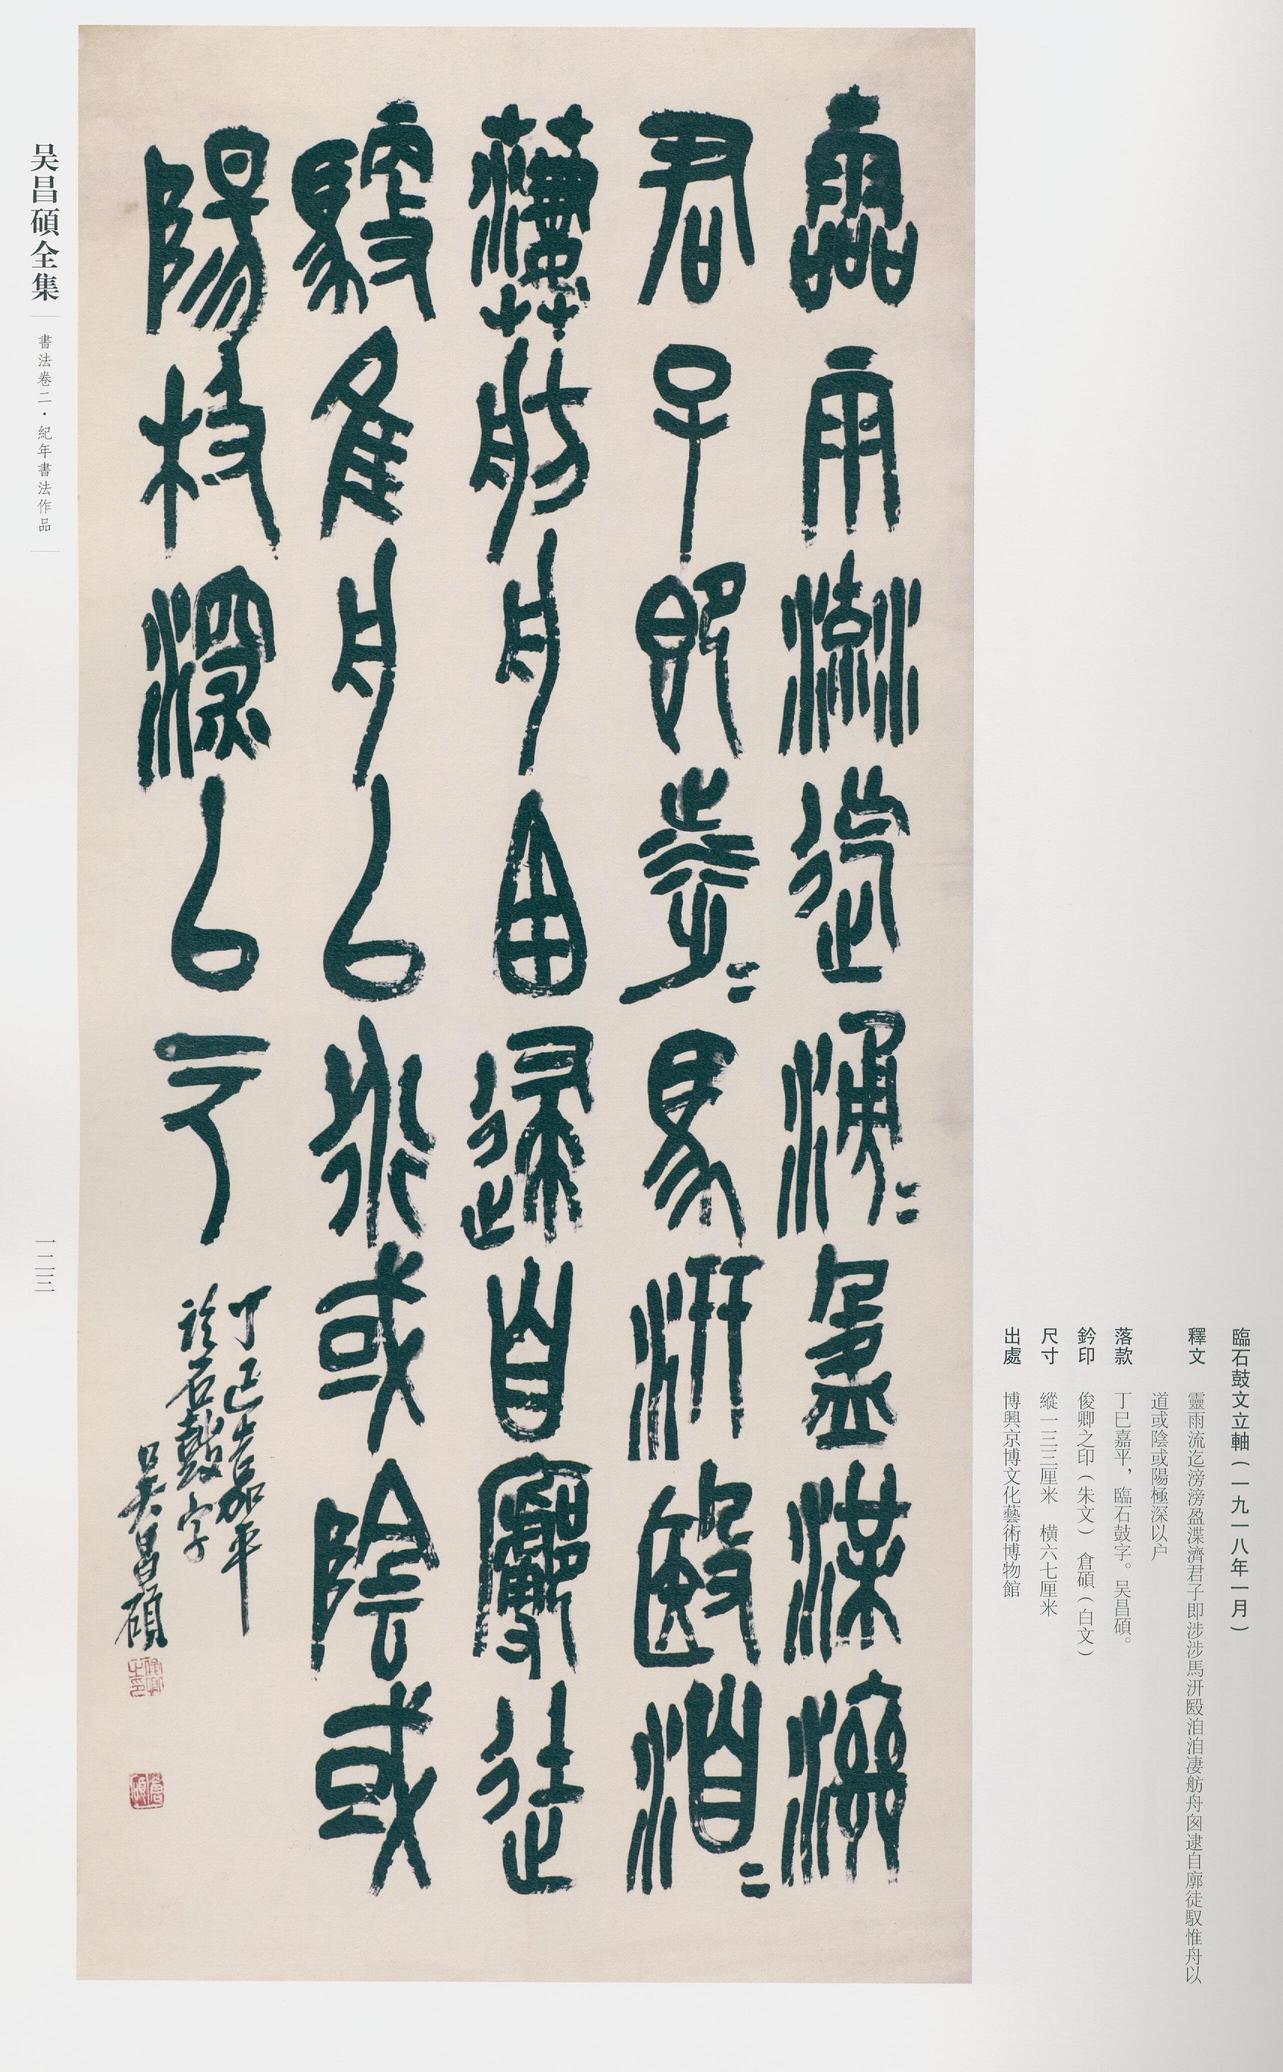 靈雨流迄滂〻盈渫濟
君子即涉〻馬汧殹洎〻
淒舫舟囪逮自廓徒
馭隹舟以衍或陰或
陽极深以户
丁巳嘉平
臨石鼓字
吴昌碩
俊卿之印
倉碩
臨石鼓文立軸(一九一八年一月)
釋文 靈雨流迄滂滂盈渫濟君子即涉涉馬汧殹洎洎凄舫舟囪逮自廓徒馭惟舟以
道或陰或陽極深以户
落款 丁巳嘉平,臨石鼓字。吴昌碩。
鈐印 俊卿之印(朱文) 倉碩(白文)
尺寸 縱一三三厘米 横六七厘米
出處 博興京博文化藝術博物館
吴昌碩全集
書法卷二·紀年書法作品
一二三